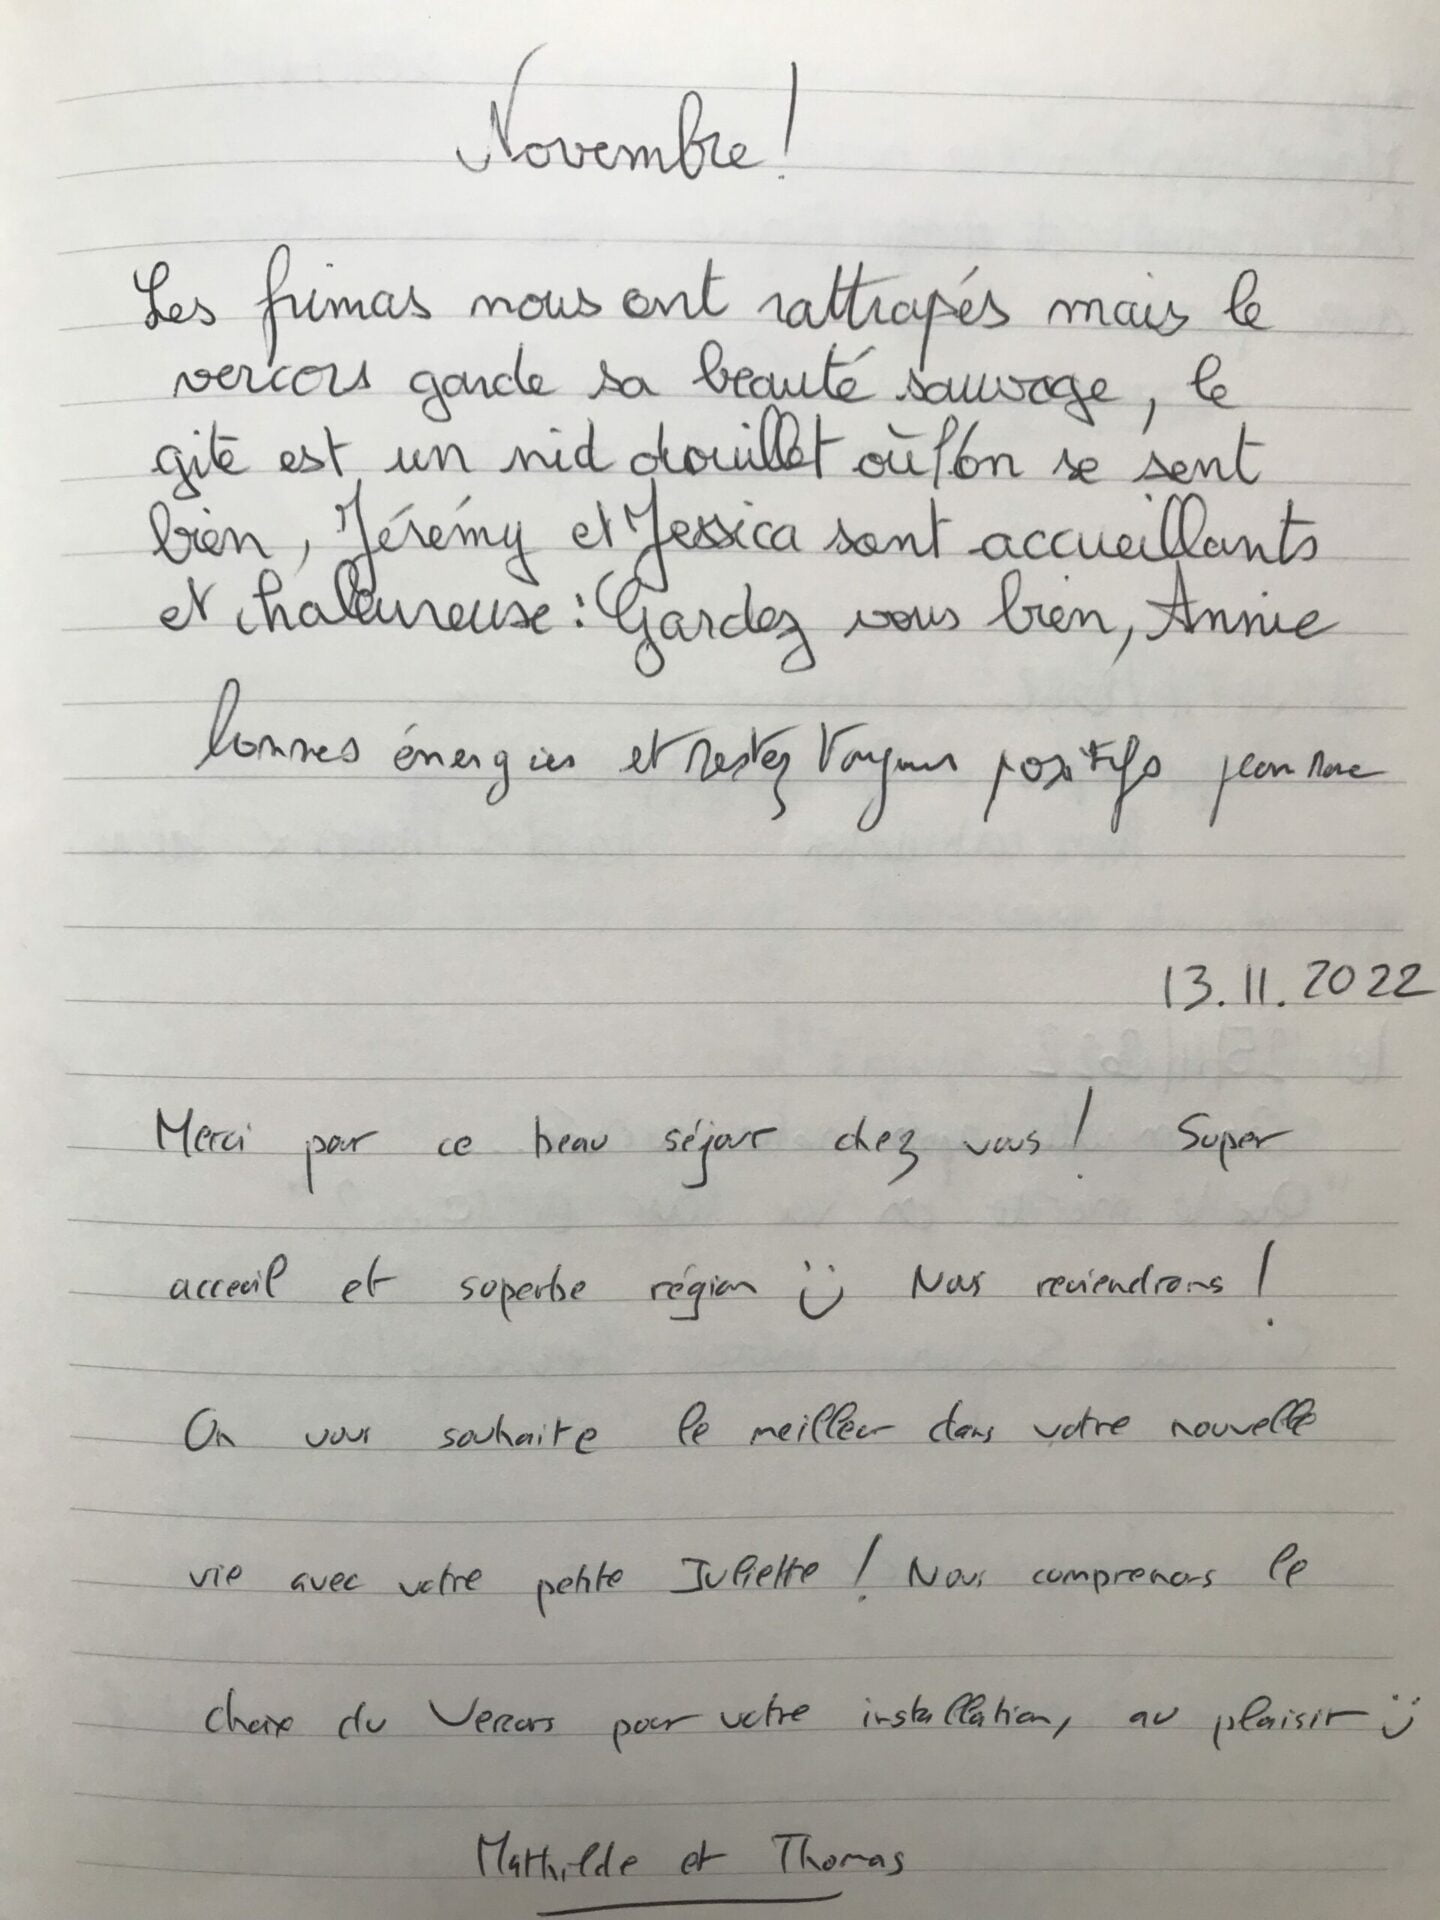 Novembre !
Les frimas nous ont rattrapés mais le
vercors garde sa beauté sauvage, le
gite est un nid douillet où l'on se sent
bien, Jérémy et Jessica sont accueillants
et chaleureuse : Gardez vous bien, Annie
bonnes énergies et restez Toujours positifs jean marc
13.11.2022
Merci pour ce beau séjour chez vous ! Super
acceuil et superbe région :) Nous reviendrons !
On vous souhaite le meilleur dans votre nouvelle
vie avec votre petite Juliette ! Nous comprenons le
choix du Vercors pour votre installation, au plaisir :)
Mathilde et Thomas